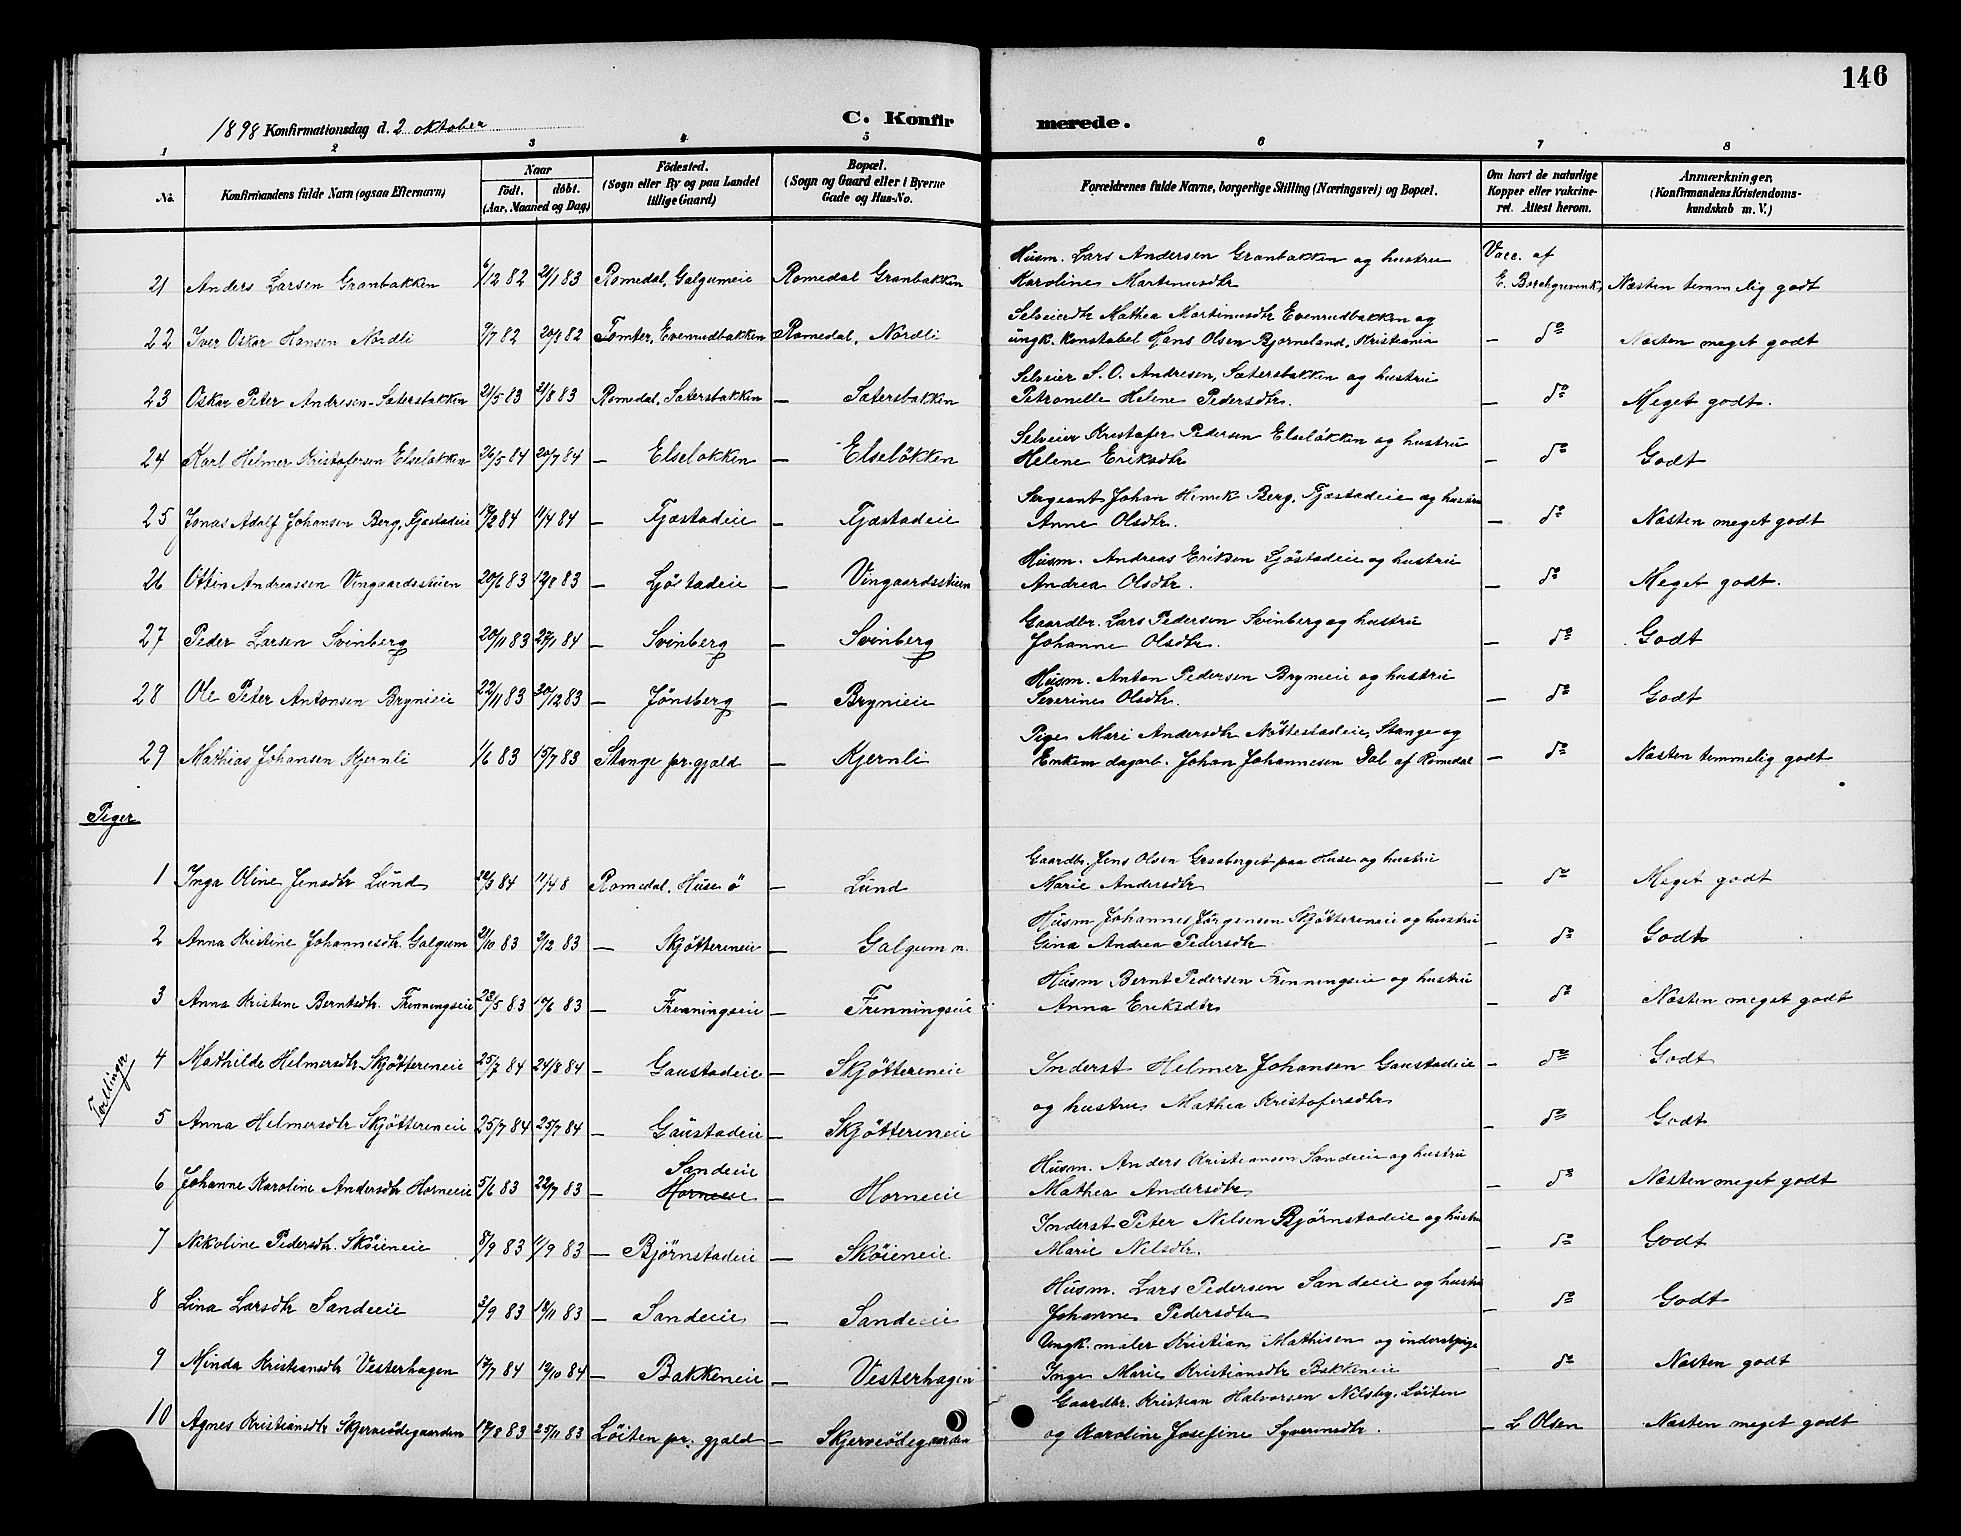 146
1898 Konfirmationsdag d. 2 oktober
C. Konfirmerede.
1 2 3 4 5 6 7 8
No. | Konfirmandens fulde Navn (ogsaa Efternavn) | Naar födt. döbt. (Aar, Maaned og Dag) | Födested. (Sogn eller By og paa Landet tillige Gaard) | Bopæl. (Sogn og Gaard eller i Byerne Gade og Hus-No. | Forældrenes fulde Navne, borgerlige Stilling (Næringsvei) og Bopæl. | Om havt de naturlige Kopper eller vakcineret. Attest herom. | Anmærkninger, (Konfirmandens Kristendomskundskab m. V.)
21 Anders Larsen Granbakken 6/12 82 21/1 83 Romedal, Galgumeie Romedal Granbakken Husm. Lars Andersen Granbakken og hustru Karoline Martinusdtr Vacc. af E. Borchgrevink Næsten temmelig godt
22 Iver Oskar Hansen Nordli 9/7 82 20/8 82 Tomter, Evenrudbakken Romedal, Nordli Selveierdtr Mathea Martinusdtr Evenrudbakken og ungk. Konstabel Hans Olsen Bjorneland, Kristiania — do Næsten meget godt
23 Oskar Peter Andresen Sætersbakken 21/5 83 21/8 83 Romedal, Sætersbakken — Sætersbakken Selveier S. O. Andresen, Sætersbakken og hustru Petronelle Helene Pedersdtr. — do Meget godt.
24 Karl Helmer Kristofersen Elseløkken 26/5 84 20/7 84 — Elseløkken — Elseløkken Selveier Kristofer Pedersen Elseløkken og hustru Helene Eriksdtr — do Godt
25 Jonas Adolf Johansen Berg, Tjøstadeie 17/2 84 11/4 84 — Tjøstadeie — Tjøstadeie Sergeant Johan Henrik Berg, Tjøstadeie og hustru Anne Olsdtr. — do Næsten meget godt
26 Ottin Andreassen Vingaardsstuen 20/6 83 12/8 83 — Ljøstadeie — Vingaardsstuen Husm. Andreas Eriksen Ljøstadeie og hustru Andrea Olsdtr. — do Meget godt.
27 Peder Larsen Svinberg 20/11 83 27/1 84 — Svinberg — Svinberg Gaardbr. Lars Pedersen Svinberg og hustru Johanne Olsdtr. — do Godt
28 Ole Peter Antonsen Brynieie 22/11 83 30/12 83 — Jønsberg — Brynieie Husm. Anton Pedersen Brynieie og hustru Severine Olsdtr. — do Godt
29 Mathias Johansen Kjernli 1/6 83 15/7 83 Stange pr.gjæld — Kjernli Pige Mari Andersdtr Nøttestadeie, Stange og Enkem dagarb. Johan Johannesen Dal af Romedal — do Næsten temmelig godt
Piger
1 Inga Oline Jensdtr Lund 22/3 84 11/4 8 Romedal, Huse ø — Lund Gaardbr. Jens Olsen Graaberget paa Huse og hustru Marie Andersdtr — do Meget godt
2 Anna Kristine Johannesdtr. Galgum 21/10 83 9/12 83 — Skjøttereneie — Galgum n. Husm Johannes Jørgensen Skjøttereneie og hustru Gina Andrea Pedersdtr — do Godt
3 Anna Kristine Berntsdtr. Frenningseie 22/5 83 10/6 83 — Frenningseie — Frenningseie Husm Bernt Pedersen Frenningseie og hustru Anna Eriksdtr — do Næsten meget godt
Tvillinger
4 Mathilde Helmersdtr Skjøttereneie 25/7 84 24/8 84 — Gaustadeie — Skjøttereneie Inderst Helmer Johansen Gaustadeie — do Godt
5 Anna Helmersdtr Skjøttereneie 25/7 84 25/7 84 — Gaustadeie — Skjøttereneie og hustru Mathea Kristofersdtr — do Godt
6 Johanne Karoline Andersdtr Horneeie 5/6 83 22/7 83 — Sandeeie Horneeie — Horneeie Husm. Anders Kristiansen Sandeeie og hustru Mathea Andersdtr — do Næsten meget godt
7 Nikoline Pedersdtr. Skøieneie 8/9 83 11/9 83 — Bjørnstadeie — Skøieneie Inderst Peter Nilsen Bjørnstadeie og hustru Marie Nilsdtr. — do Godt
8 Lina Larsdtr Sandeeie 3/9 83 18/11 83 — Sandeeie — Sandeeie Husm. Lars Pedersen Sandeeie og hustru Johanne Pedersdtr — do Godt
9 Minda Kristiansdtr Vesterhagen 17/7 84 12/10 84 — Bakkeneie — Vesterhagen Ungk. maler Kristian Mathisen og inderstpige Inge Marie Kristiansdtr Bakkeneie — do Næsten godt
10 Agnes Kristiansdtr Skjerveødegaarden 17/8 83 25/11 83 Løiten pr. gjæld — Skjerveødegaarden Gaardbr. Kristian Halvorsen Nilsby, Løiten og Karoline Josefine Syverinsdtr. — L Olsen Næsten meget godt